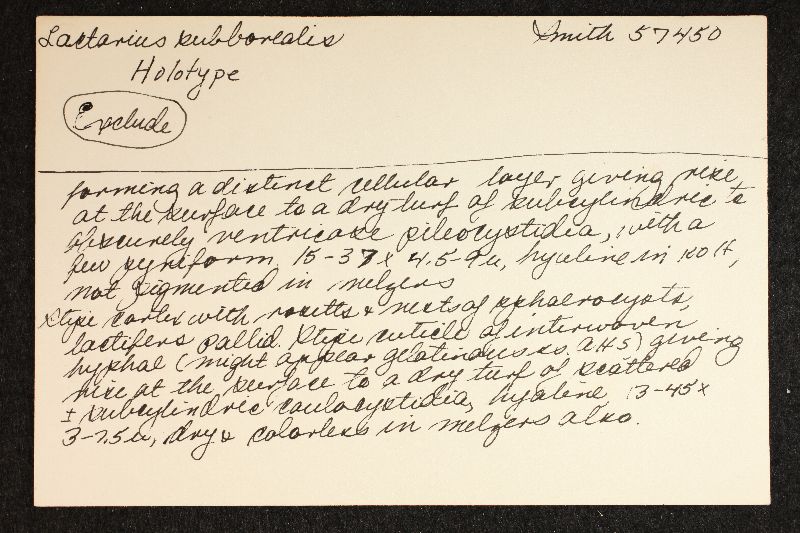 Lactarius subborealis Smith 57450
Holotype
Exclude
forming a distinct cellular layer giving rise
at the surface to a dry turf of subcylindric to
obscurely ventricose pileocystidia, with a
few pyriform, 15-37 x 4.5-9 u, hyaline in KOH,
not pigmented in melzers
Stipe cortex with rosetts & nests of sphaerocysts,
lactifers pallid. Stipe cuticle of interwoven
hyphae (might appear gelatinous ss. AHS) giving
rise at the surface to a dry turf of scattered
± subcylindric caulocystidia, hyaline, 13-45 x
3-7.5 u, dry & colorless in melzers also.